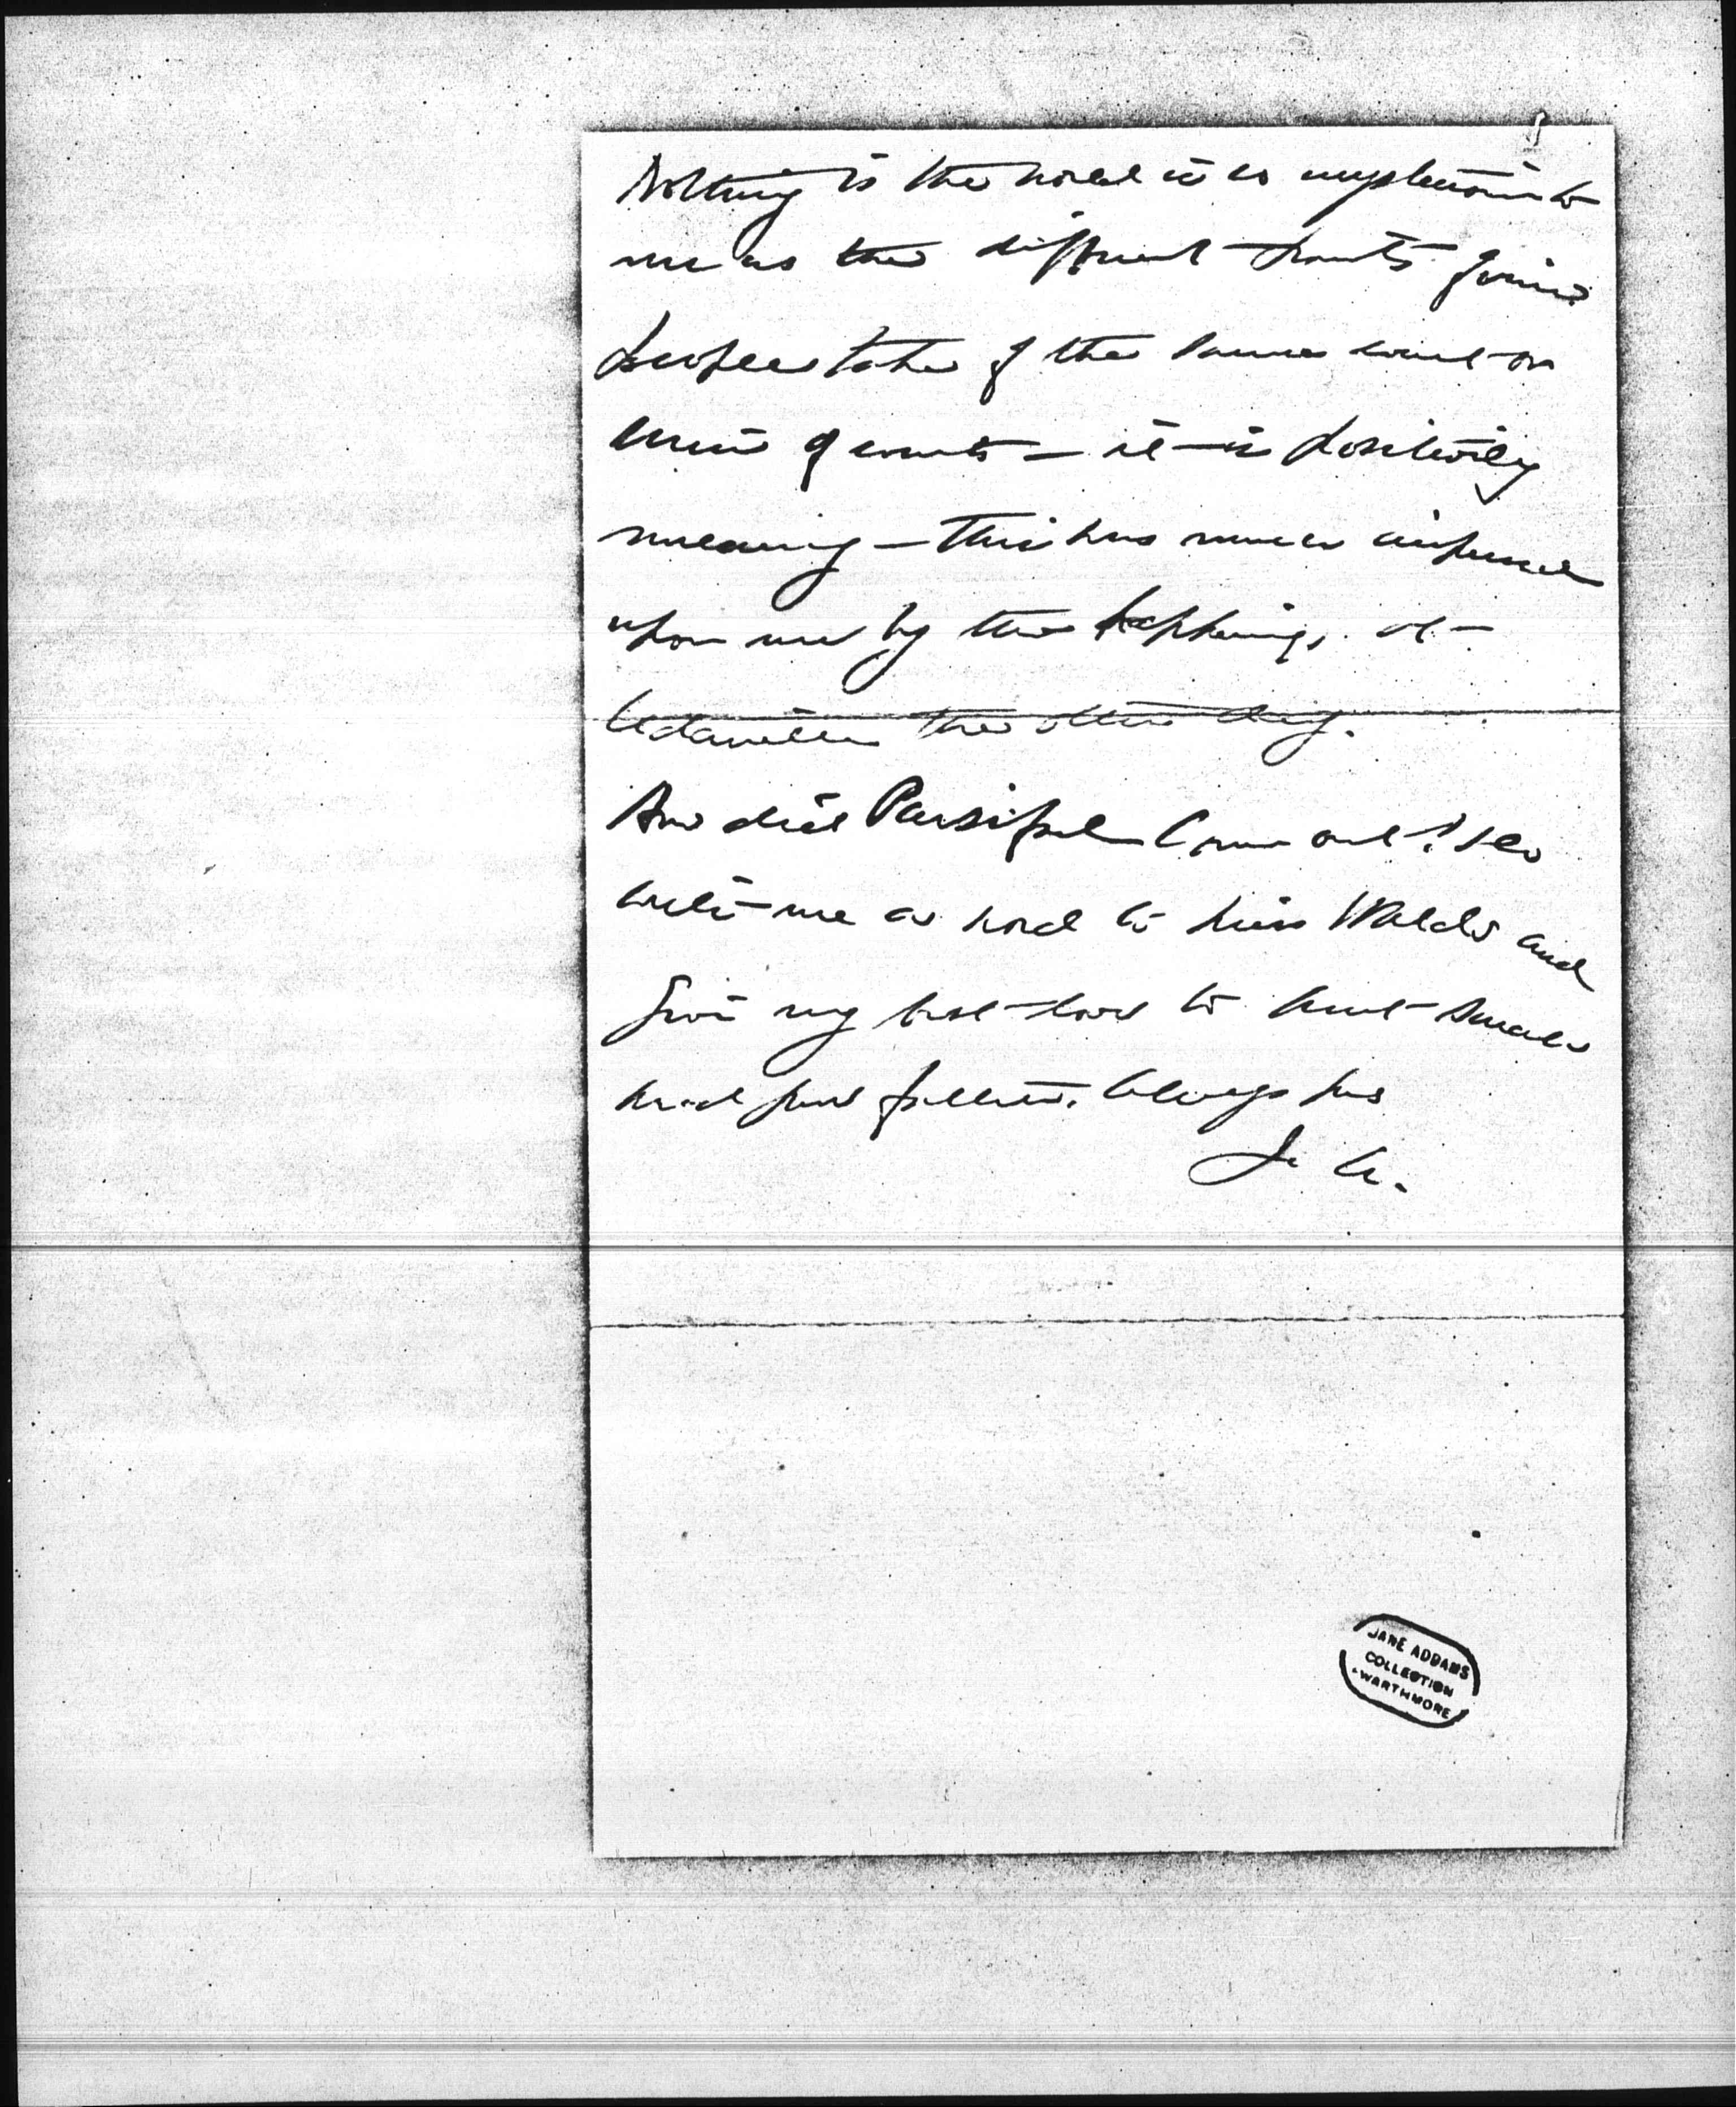 Nothing in the world is so mysterious to
me as the different points of view
people take of the same event or
series of events — it is positively
 — this was never impressed
upon me by the happenings at
 the other day.
How did Parsifal come out? Do
write me a word to Miss Waldo and
Give my best love to Aunt
 Always yrs
J. A.
JANE ADDAMS
COLLECTION
SWARTHMORE